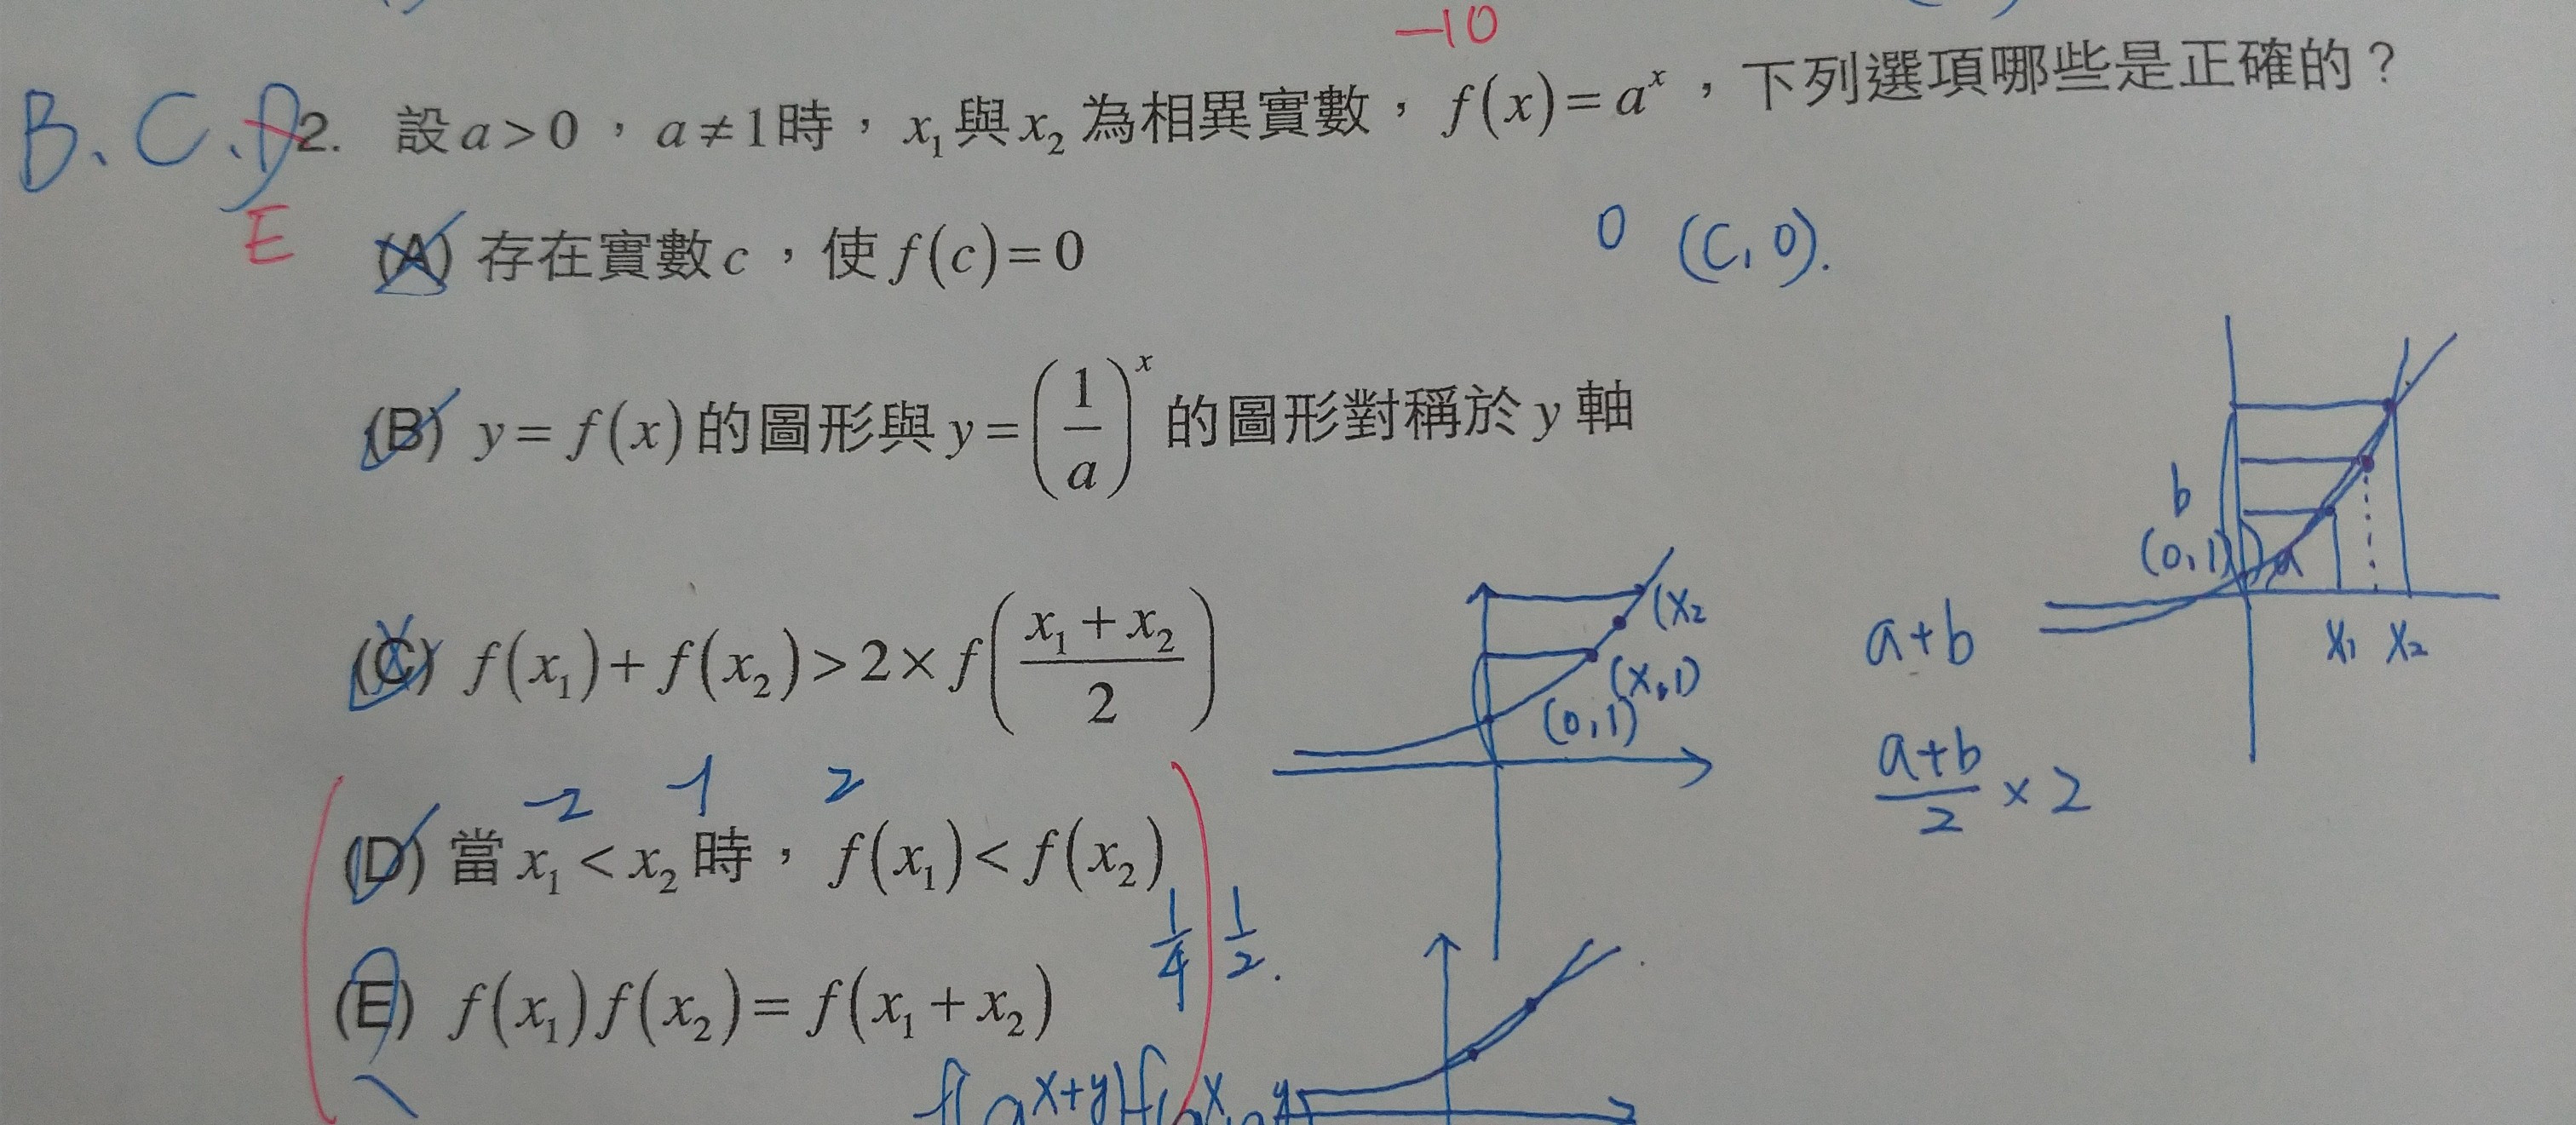 -10
B. C. D 2. 設 a > 0 ,a ≠ 1 時,x₁ 與 x₂ 為相異實數,f(x) = aˣ ,下列選項哪些是正確的?
E
(A) 存在實數 c ,使 f(c) = 0
0 (c, 0).
(B) y = f(x) 的圖形與 y = (1/a)ˣ 的圖形對稱於 y 軸
b
(0,1) a
x₁ x₂
(C) f(x₁) + f(x₂) > 2 × f((x₁ + x₂)/2)
(x₂
(0,1)
a+b
(a+b)/2 × 2
-2 -1 2
(D) 當 x₁ < x₂ 時,f(x₁) < f(x₂)
1/4 1/2.
(E) f(x₁) f(x₂) = f(x₁ + x₂)